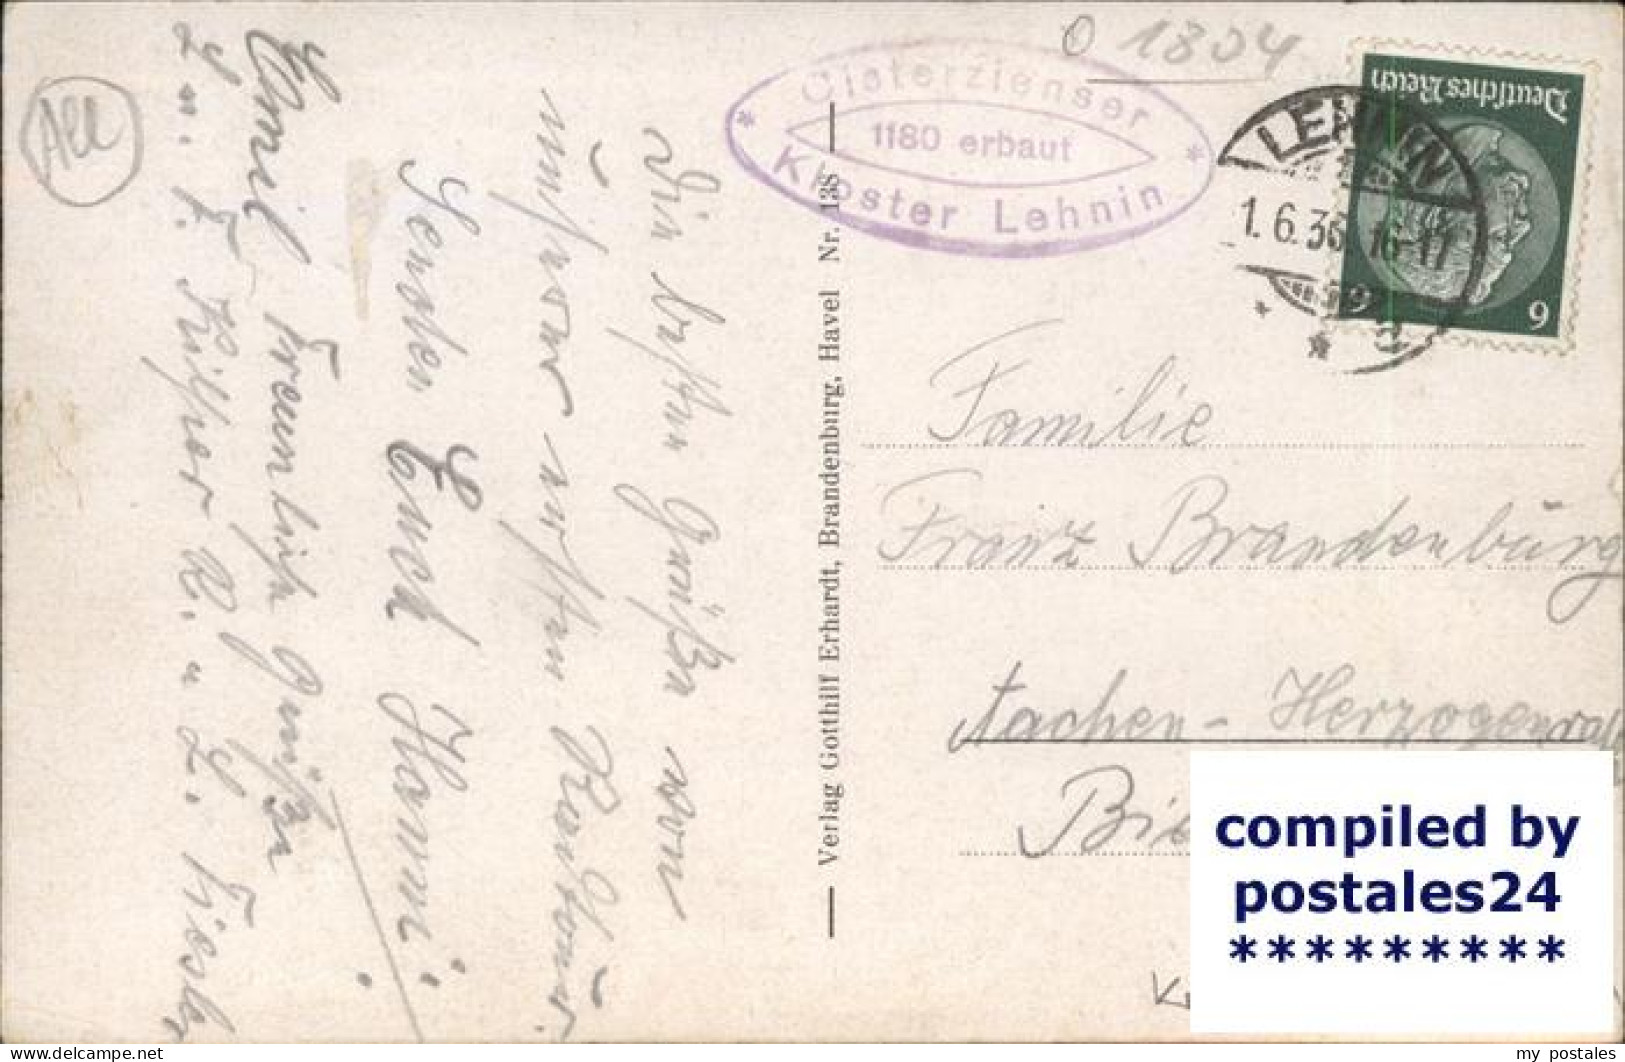 O 1304
Cisterzienser
1180 erbaut
Kloster Lehnin
Deutsches Reich
6
6
LEHNIN
1.6.36 16-17
a
Die besten Grüßen von
unserer ersten
senden Euch Hanni
Emil Freundliche Grüßen
Verlag Gotthilf Erhardt, Brandenburg, Havel Nr. 138
Familie
Franz Brandenburg
Aachen - Herzogenrath
compiled by
postales24
*********
my postales